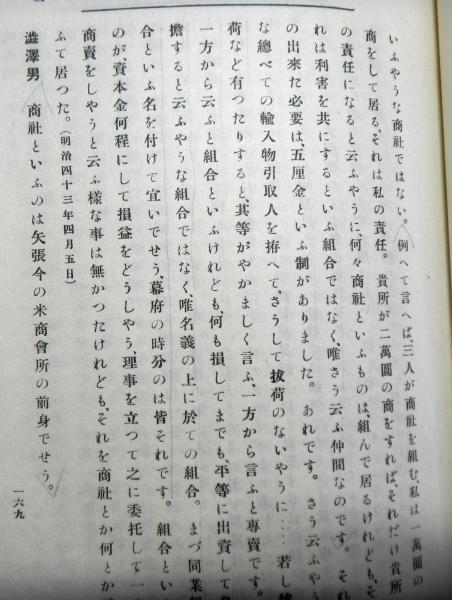 いふやうな商社ではない。例へて言へば、三人が商社を組む、私は一萬圓の
商をして居る、それは私の責任。貴所が二萬圓の商をすれば、それだけ貴所
の責任になると云ふやうに、何々商社といふものは、組んで居るけれども、そ
れは利害を共にするといふ組合ではなく、唯さう云ふ仲間なのです。それ
の出來た必要は、五厘金といふ制がありました。あれです。さう云ふやう
な總べての輸入物引取人を拵へて、さうして拔荷のないやうに‥‥若し
荷など有つたりすると、其等がやかましく言ふ、一方から言ふと專賣です。
一方から云ふと組合といふけれども、何も損してまでも、平等に出資して
擔すると云ふやうな組合ではなく、唯名義の上に於ての組合。まづ同業
合といふ名を付けて宜いでせう、幕府の時分のは皆それです。組合とい
のが、資本金何程にして損益をどうしやう、理事を立つて之に委托して一
商賣をしやうと云ふ樣な事は無かつたけれども、それを商社とか何とか
ふて居つた。(明治四十三年四月五日)
澁澤男 商社といふのは矢張今の米商會所の前身でせう。
一六九